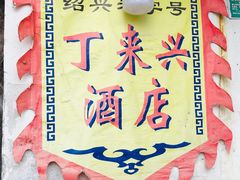 绍兴老字号
丁来兴
酒店